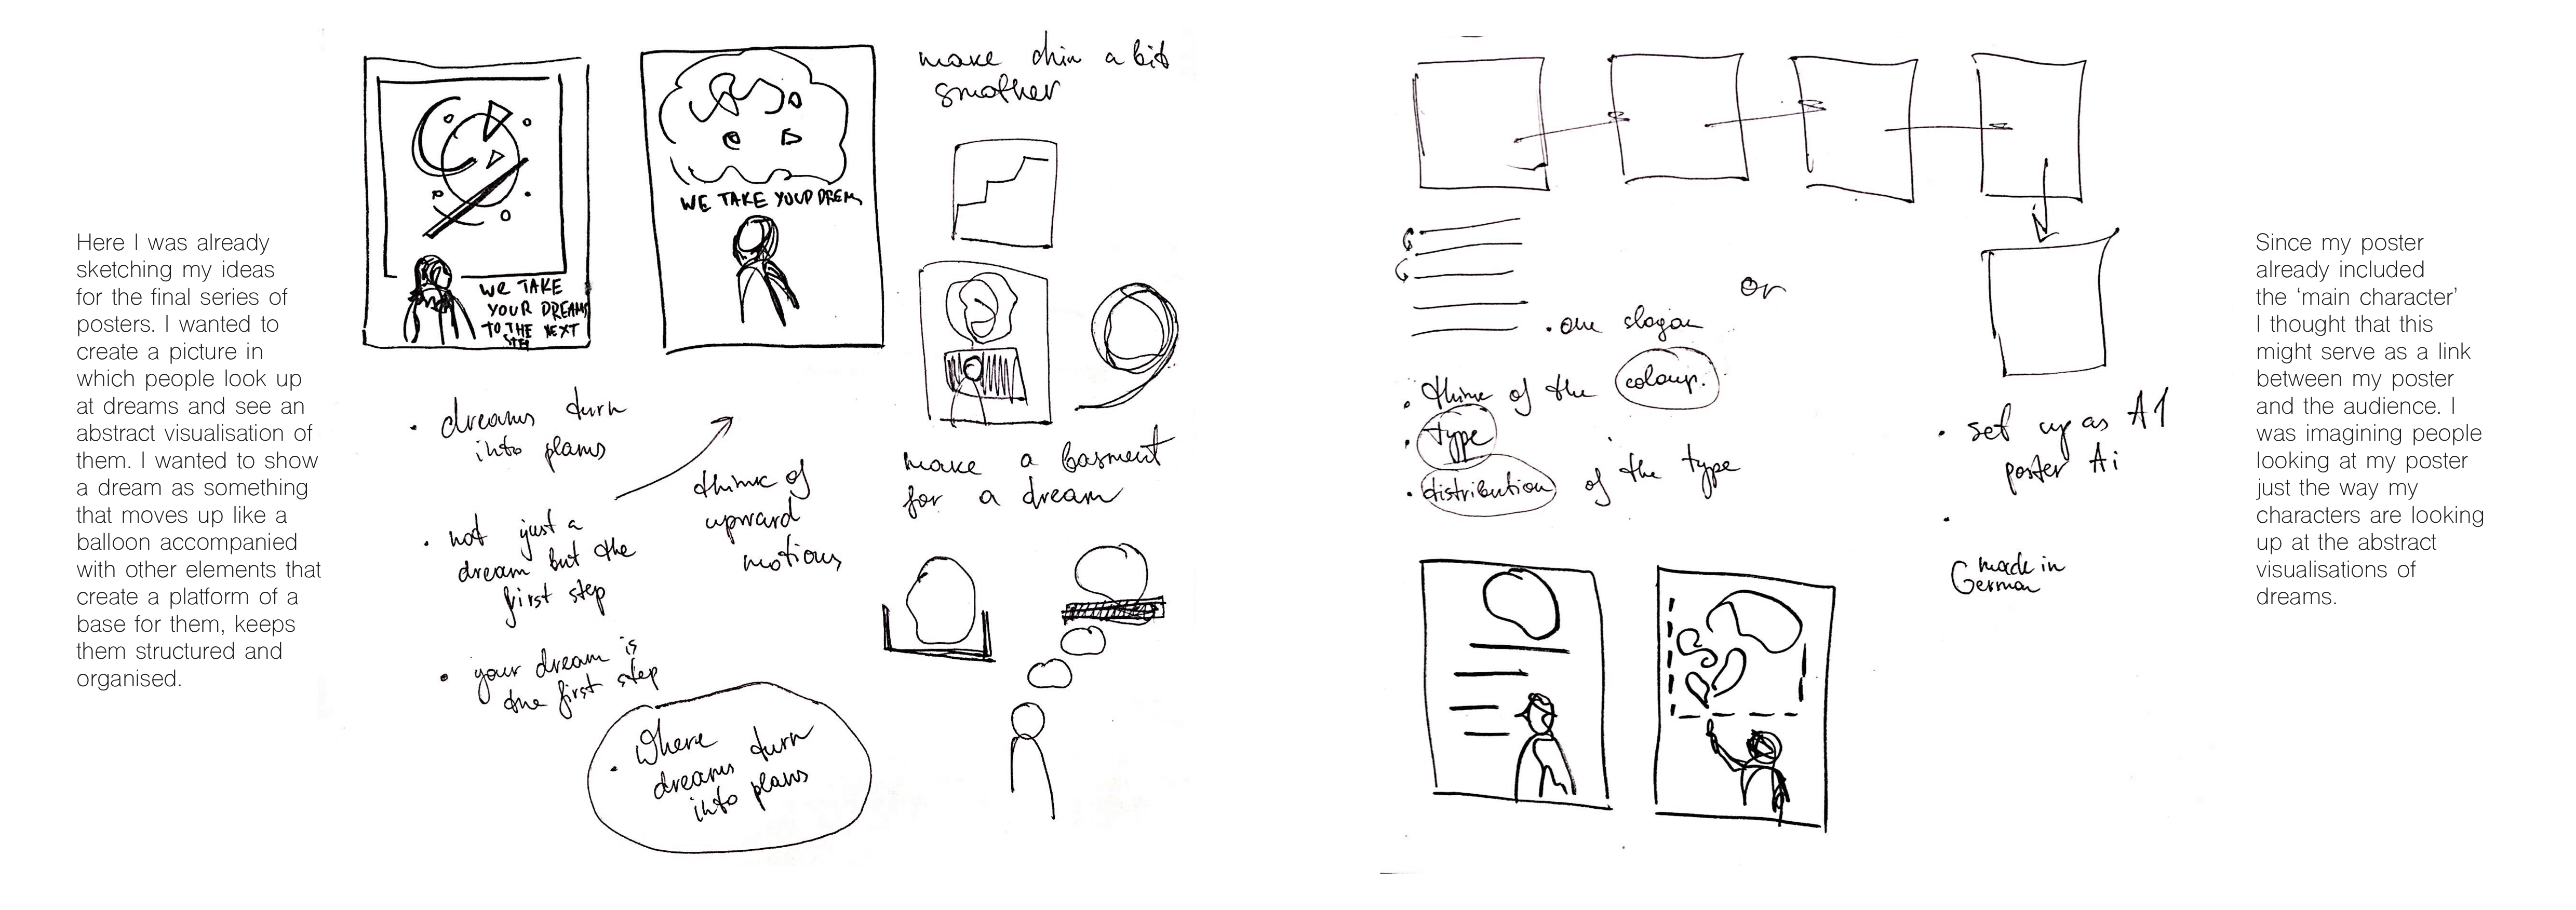 Here I was already
sketching my ideas
for the final series of
posters. I wanted to
create a picture in
which people look up
at dreams and see an
abstract visualisation of
them. I wanted to show
a dream as something
that moves up like a
balloon accompanied
with other elements that
create a platform of a
base for them, keeps
them structured and
organised.
WE TAKE
YOUR DREAMS
TO THE NEXT
STEP
WE TAKE YOUR DREAM
make chin a bit
smother
• dreams turn
into plans
think of
upward
motions
• not just a
dream but the
first step
• your dream is
the first step
• Where
dreams turn
into plans
make a basment
for a dream
or
• one slogan
• think of the colour.
• type
• distribution of the type
• set up as A1
poster Ai
•
made in
German
Since my poster
already included
the ‘main character’
I thought that this
might serve as a link
between my poster
and the audience. I
was imagining people
looking at my poster
just the way my
characters are looking
up at the abstract
visualisations of
dreams.